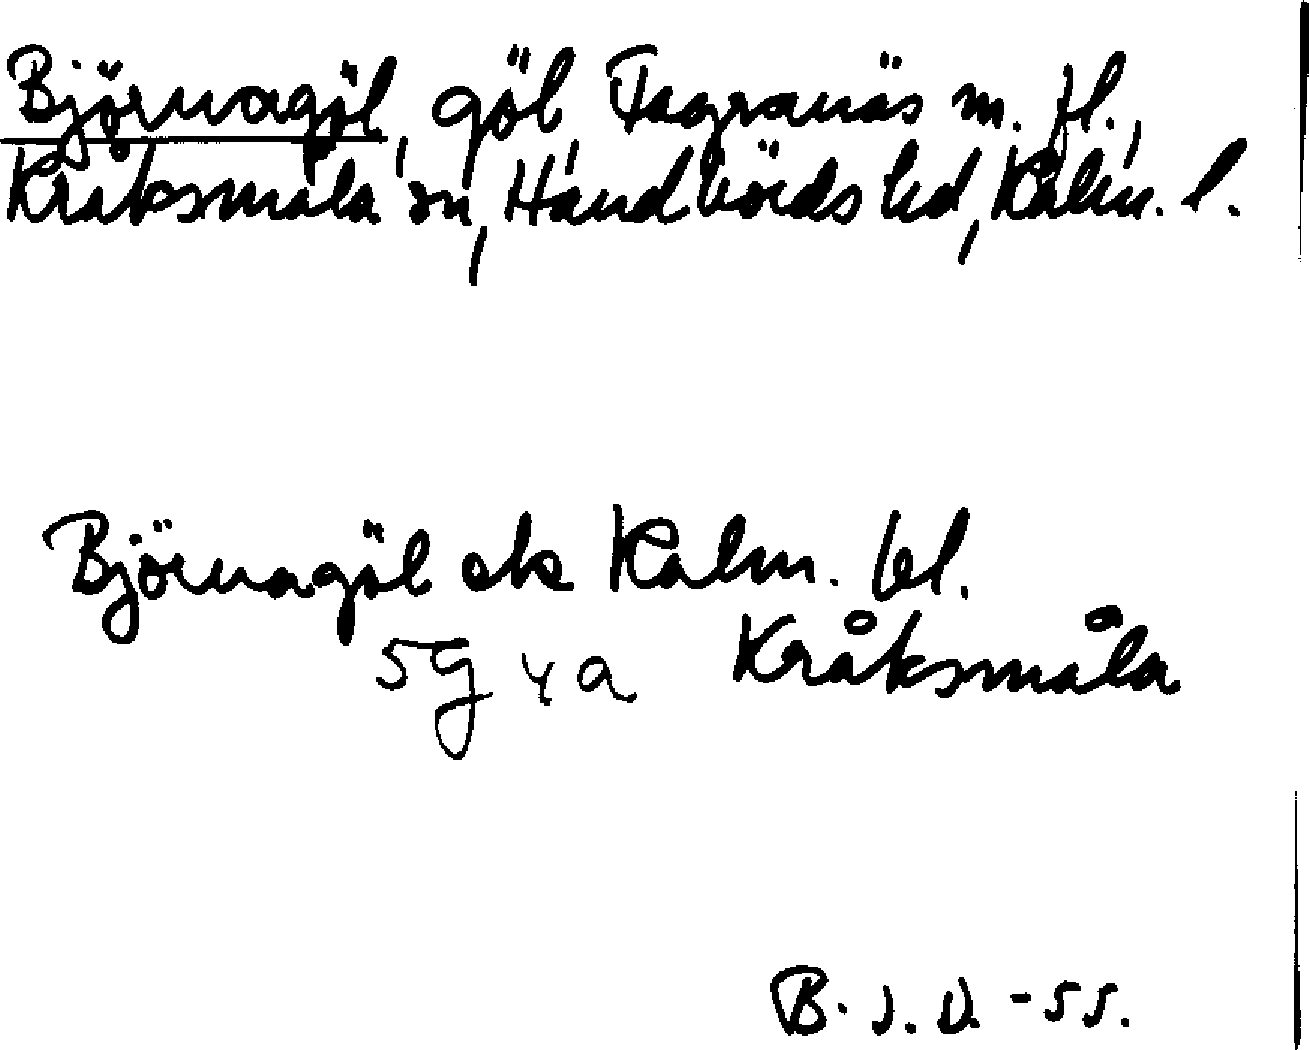 Björnagöl, göl, Fagranäs m. fl.,
Kråksmåla sn, Handbörds hd, Kalm. l.
Björnagöl ek Kalm. bl.
5g 4a Kråksmåla
B. J. D. -55.